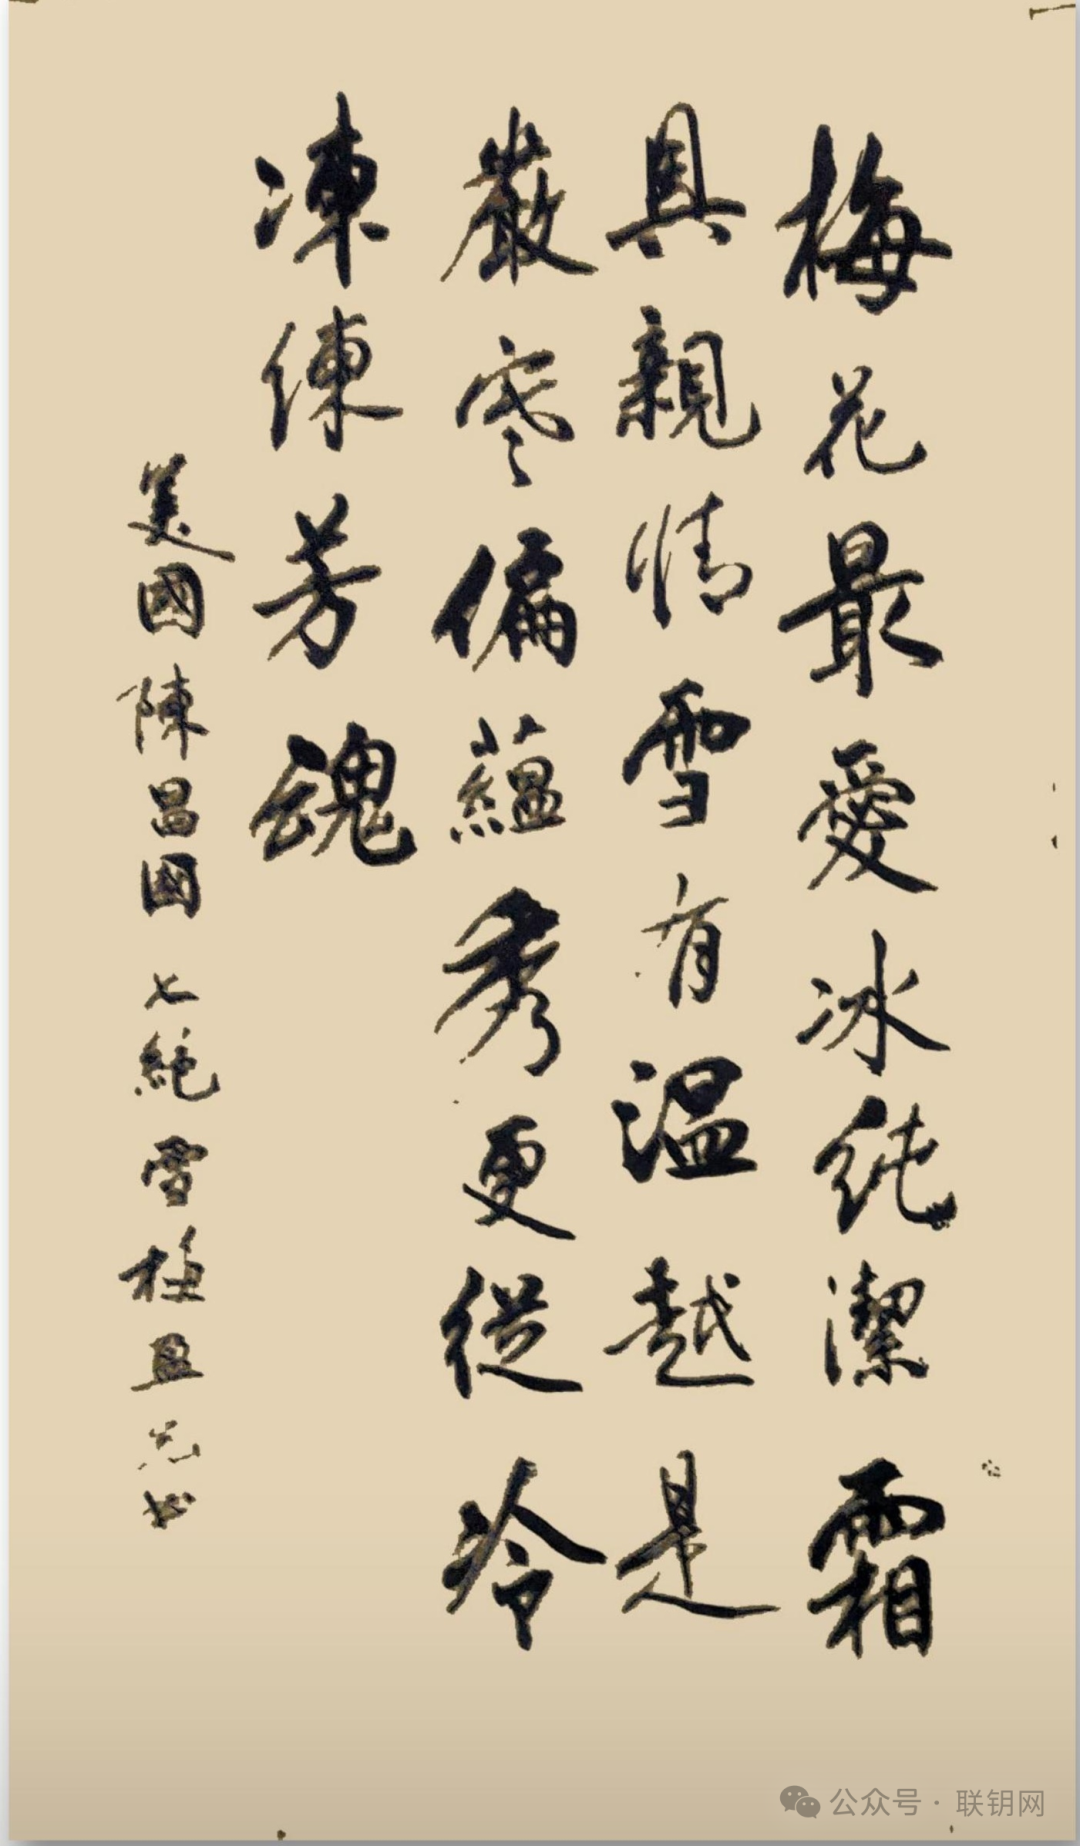 梅花最愛冰純潔霜
具親情雪有温越是
嚴寒偏蘊秀更從冷
凍練芳魂
美國陳昌國七絕雪梅盈志书
公众号·联钥网